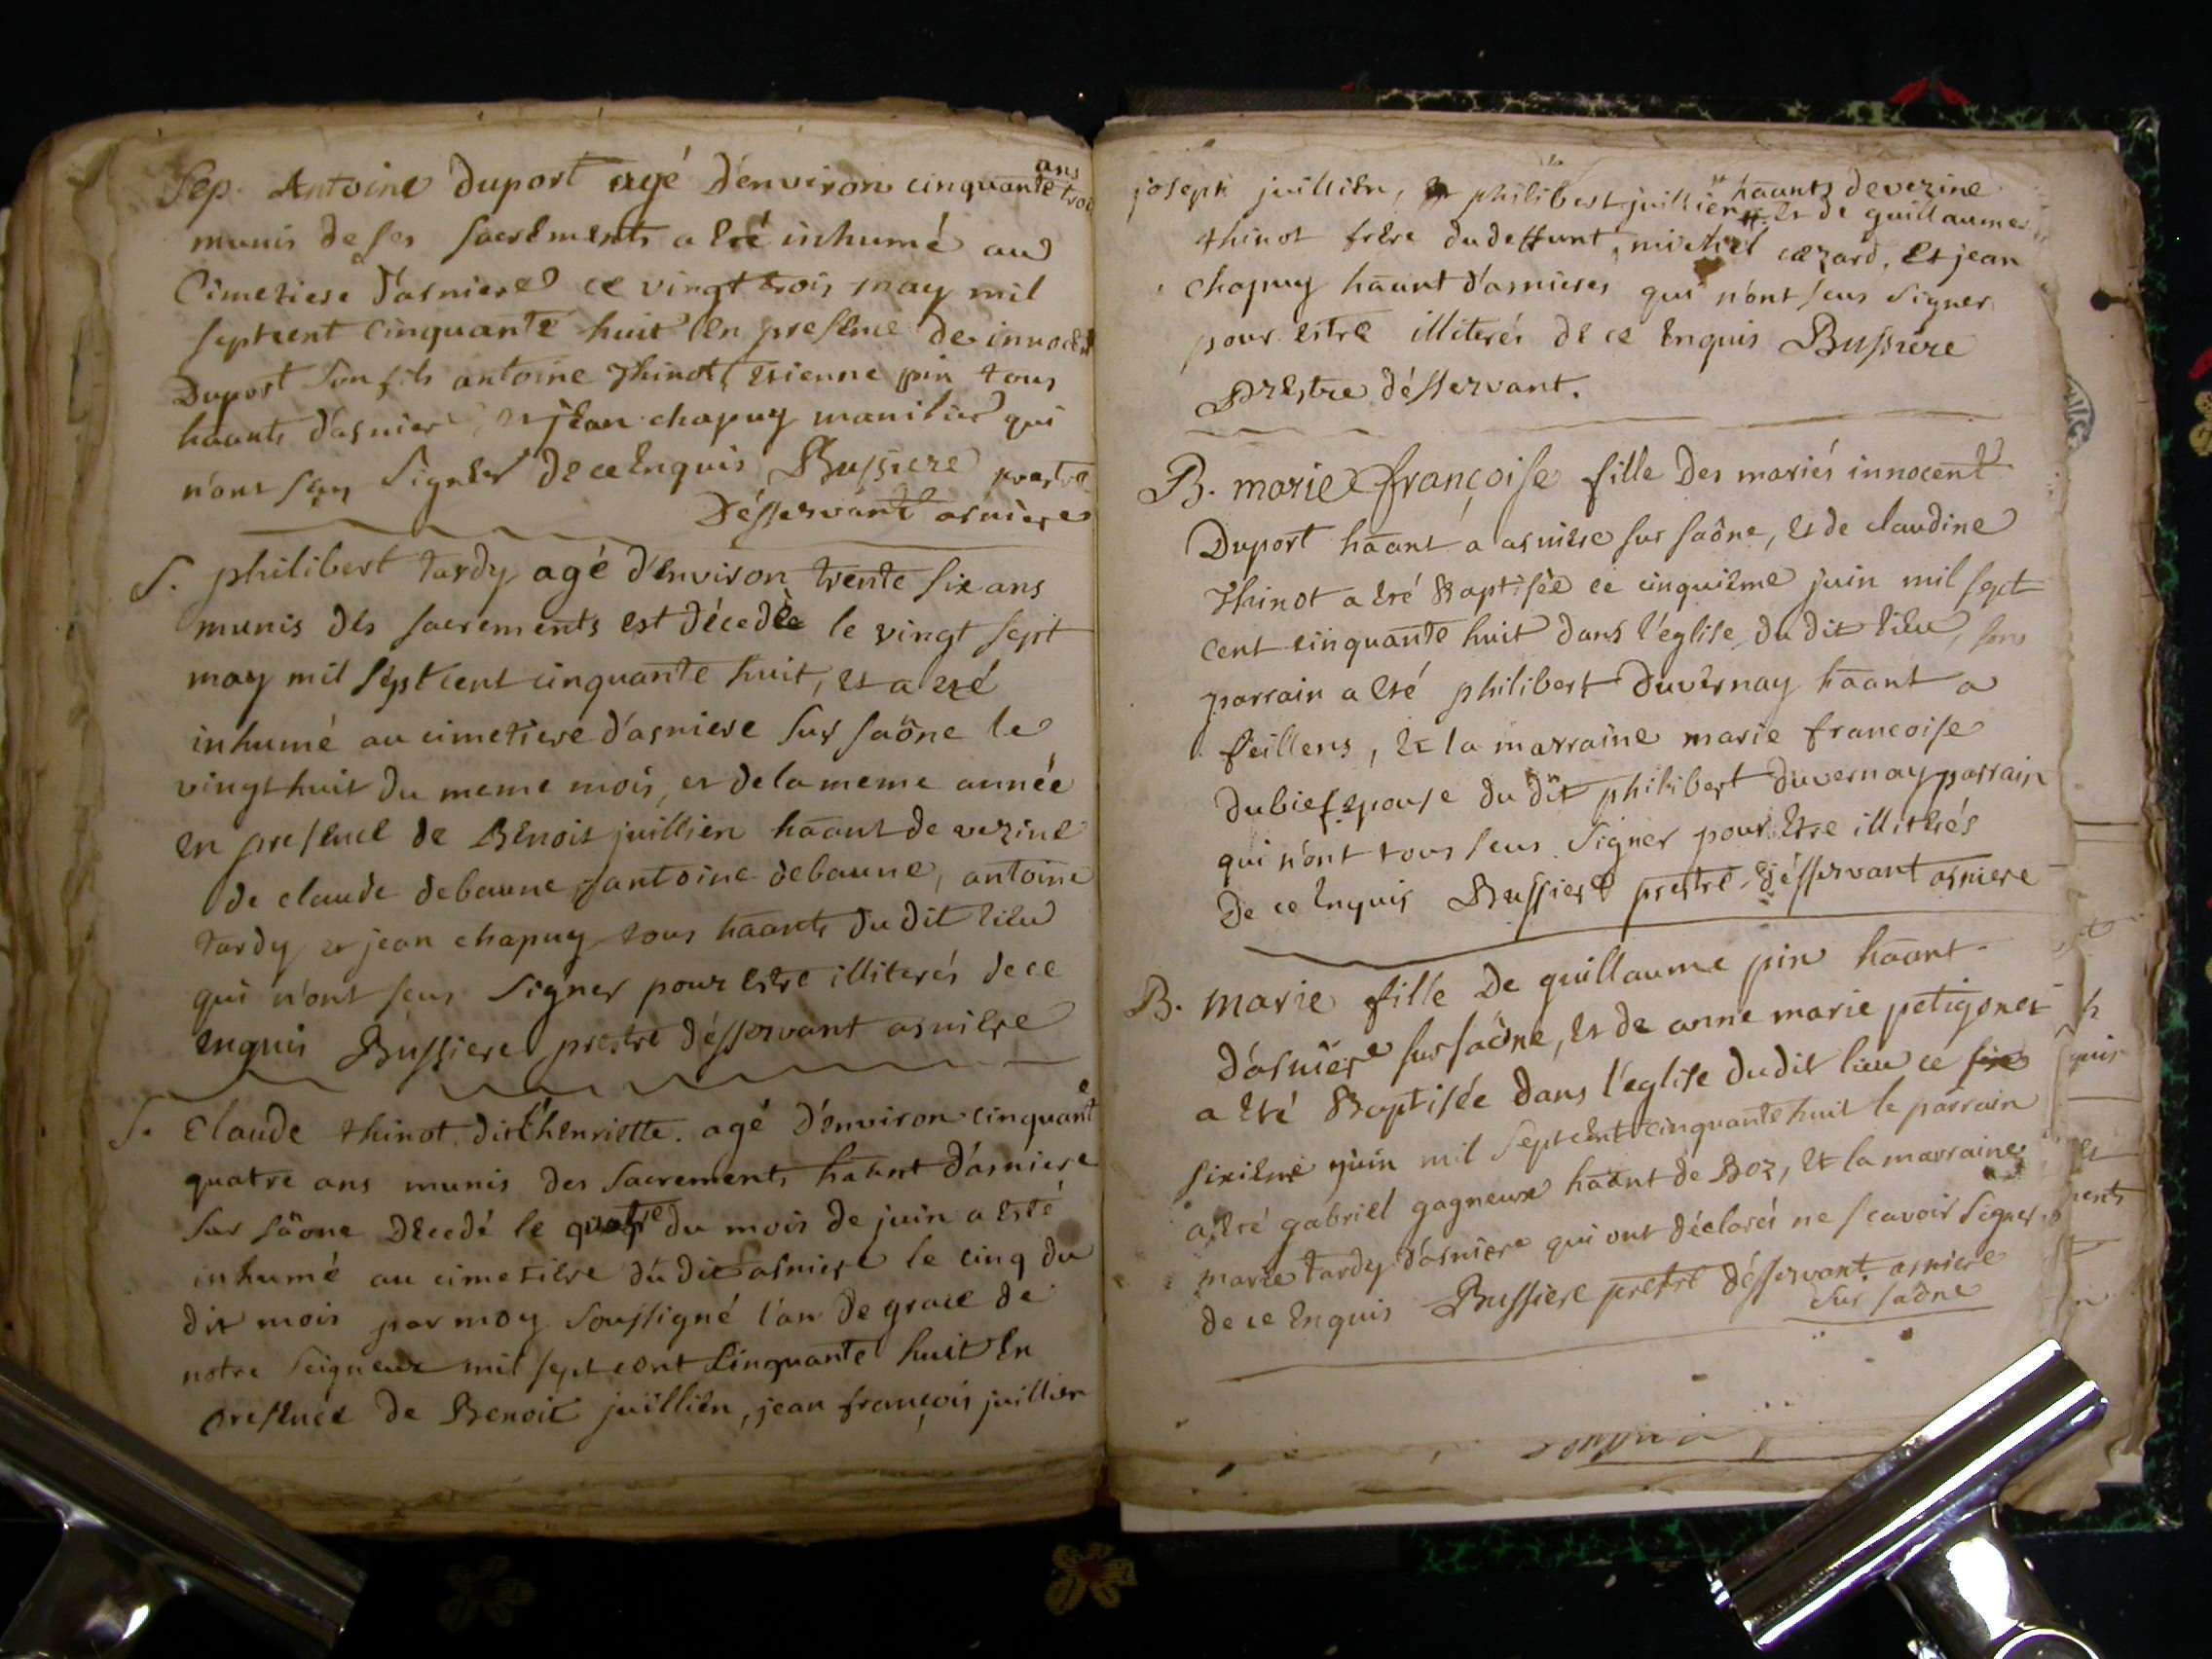 Sep. Antoine duport agé d'environ cinquante trois ans
munis de ses sacrements a eté inhumé au
Cimetiere d'asniere ce vingt trois may mil
septcent cinquante huit en presence de innocent
Duport son fils antoine Thinot, etienne pin tous
haants d'asniere, et jean chapuy manilier qui
n'ont seu signer de ce enquis Bussiere prestre
Désservant asniere
S. philibert tardy agé d'environ trente six ans
munis des sacrements est décedée le vingt sept
may mil septcent cinquante huit, et a eté
inhumé au cimetiere d'asniere sur saône le
vingt huit du meme mois, et de la meme année
en presence de Benoit juillien haant de vezine
de claude debaune, antoine debaune, antoine
tardy et jean chapuy tous haants du dit lieu
qui n'ont seus signer pour estre illiterés de ce
enquis Bussiere prestre désservant asniere
S. Claude thinot dit l'henriette agé d'environ cinquante
quatre ans munis des sacrements haant d'asniere
sur saône decedé le quatre du mois de juin a esté
inhumé au cimetiere du dit asniere le cinq du
dit mois par moy soussigné l'an de grace de
notre seigneur mil sept cent cinquante huit en
presence de Benoit juillien, jean françois juillien
joseph juillien, philibert juillien haants de vezine et de guillaume
thinot frere du deffunt, michel cazard, et jean
chapuy haant d'asnieres qui n'ont seus signer
pour estre illiterés de ce enquis Bussiere
prestre désservant.
B. marie françoise fille des mariés innocent
Duport haant a asniere sur saône, et de claudine
Thinot a eté Baptisée ce cinquieme juin mil sept
cent cinquante huit dans l'eglise du dit lieu, son
parrain a eté philibert Duvernay haant a
feillens, et la marraine marie francoise
dubief epouse du dit philibert duvernay parrain
qui n'ont tous seus signer pour etre illiterés
de ce enquis Bussiere prestre désservant asniere
B. marie fille de guillaume pin haant
d'asniere sur saône, et de anne marie petigonet
a eté Baptisée dans l'eglise du dit lieu ce six
sixieme juin mil septcent cinquante huit le parrain
a eté gabriel gagneux haant de Boz, et la marraine
marie tardy d'asniere qui ont déclarés ne scavoir signer
de ce enquis Bussiere prestre désservant asniere
sur saône